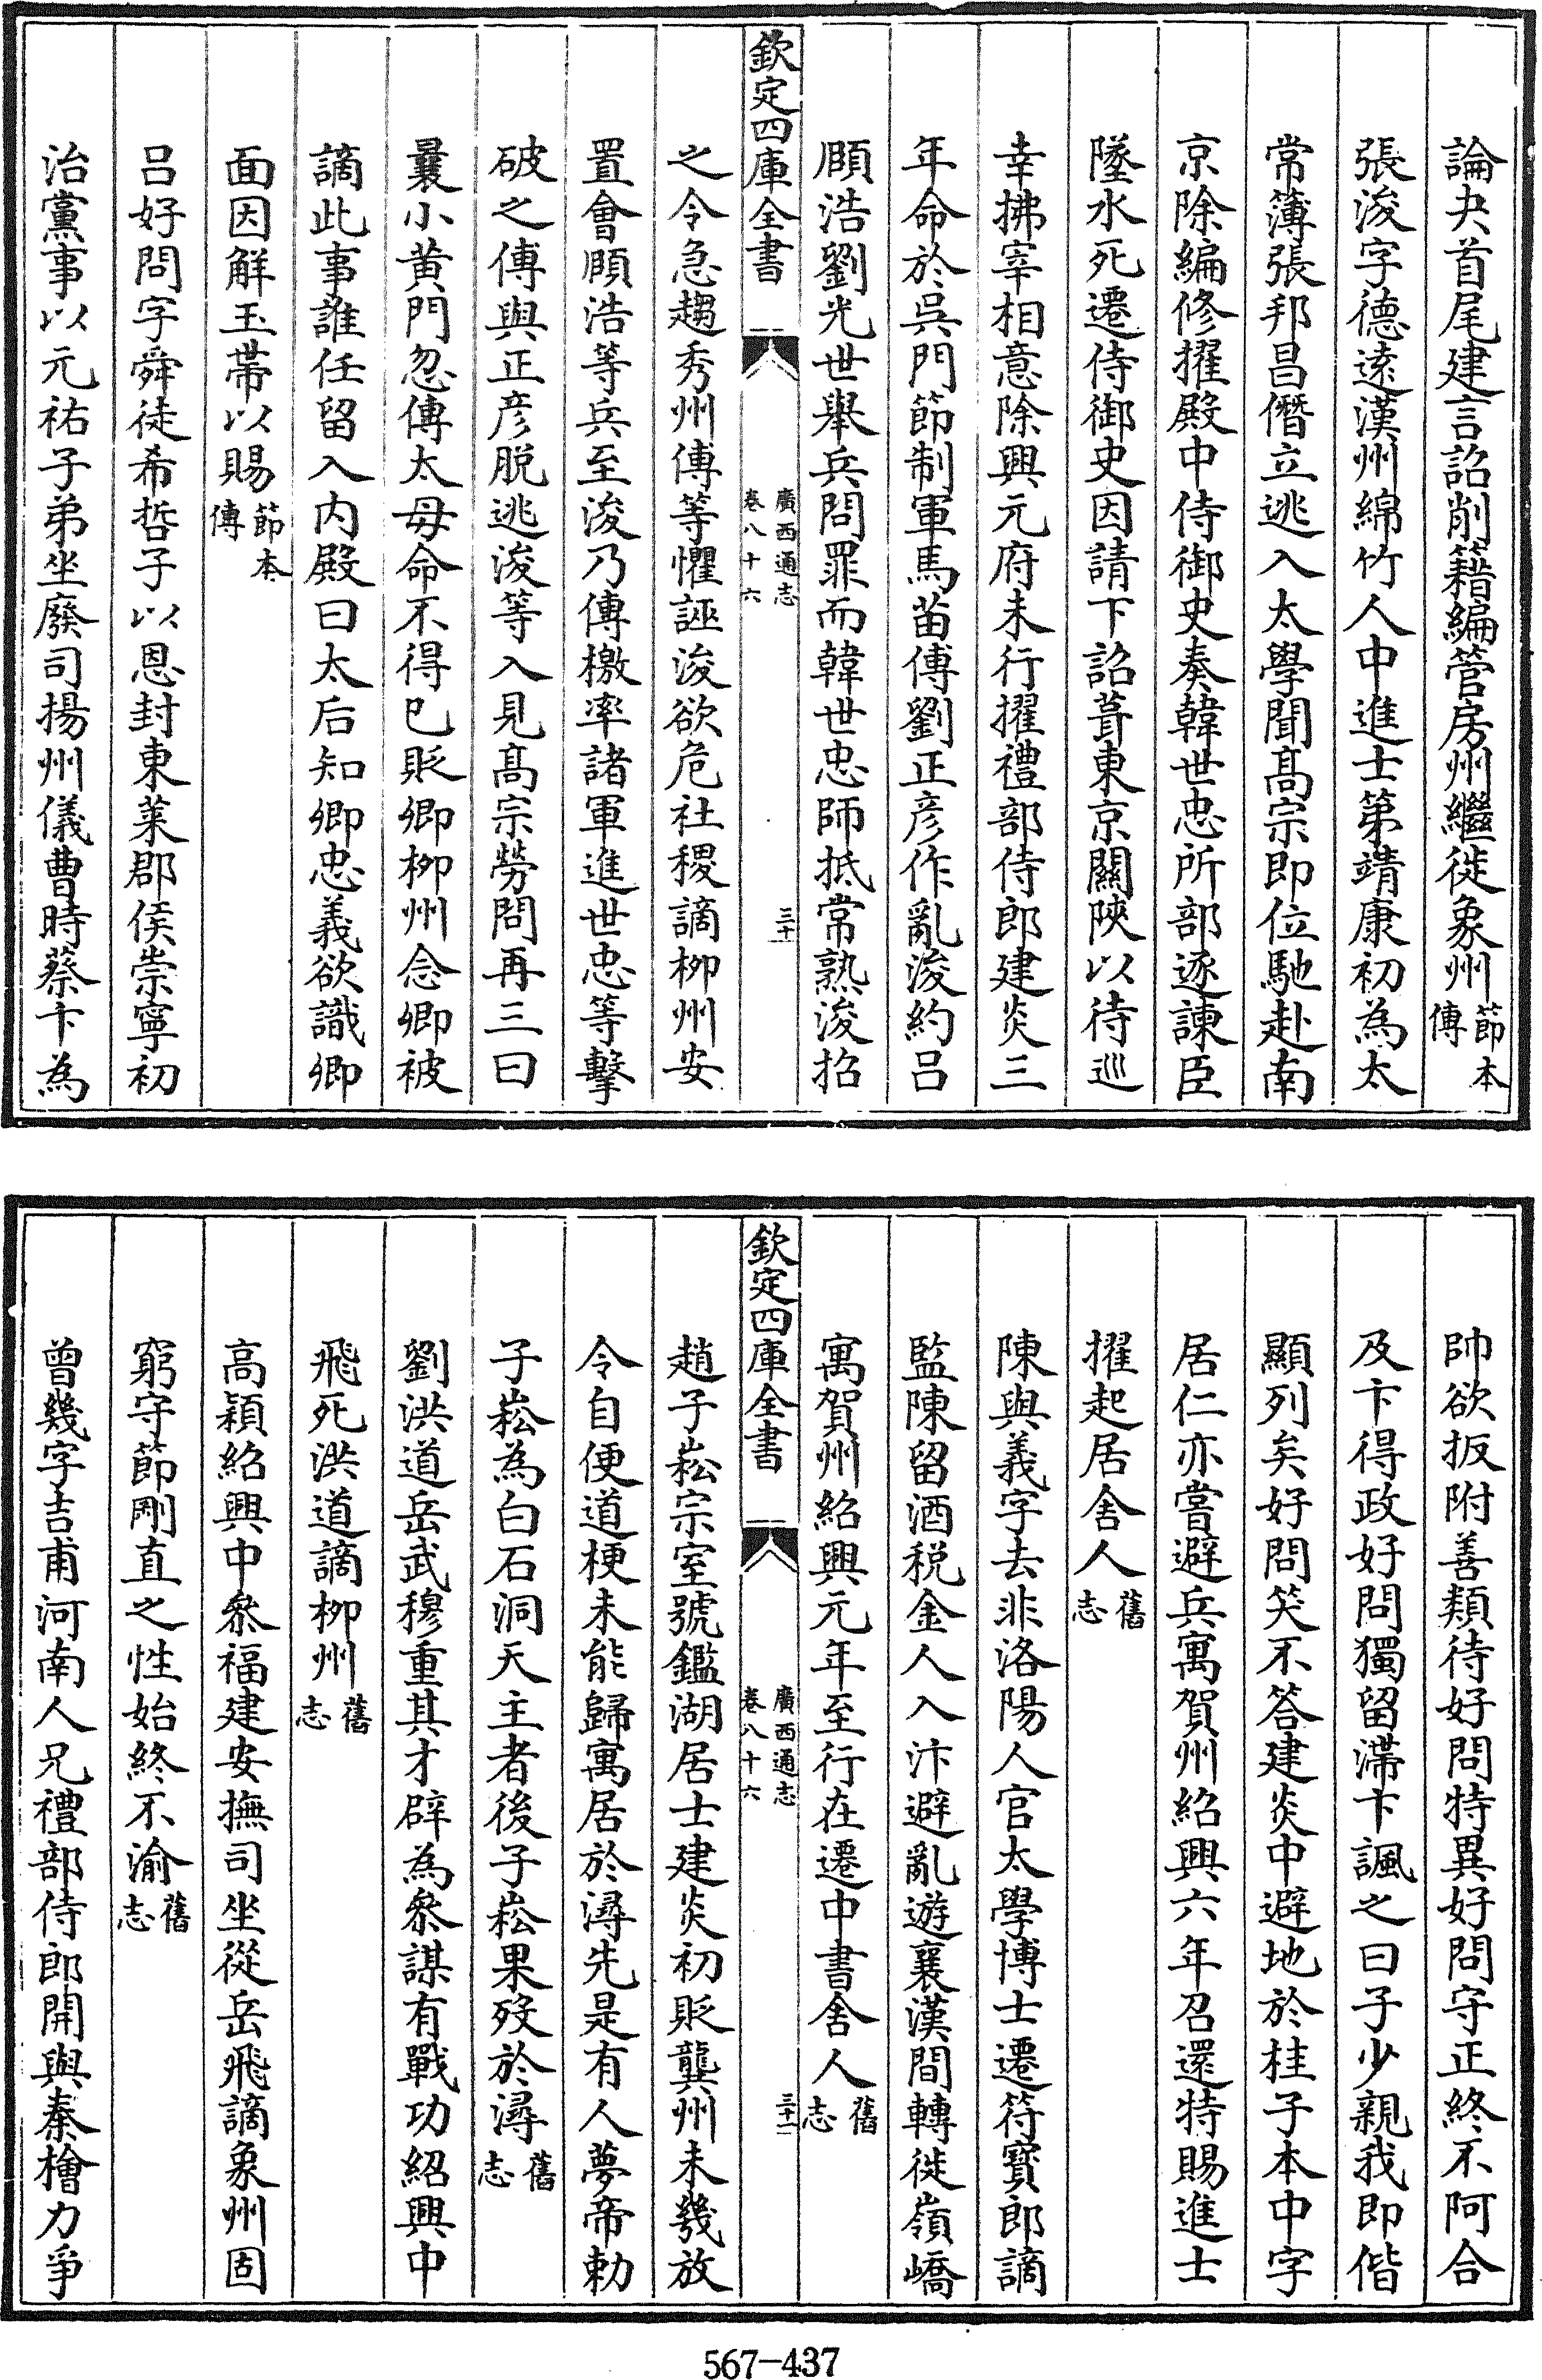 論夬首尾建言詔削籍編管房州繼徙象州節本傳
張浚字德遠漢州綿竹人中進士第靖康初為太
常簿張邦昌僭立逃入太學聞髙宗即位馳赴南
京除編修擢殿中侍御史奏韓世忠所部逐諫臣
墜水死遷侍御史因請下詔葺東京關陝以待巡
幸拂宰相意除興元府未行擢禮部侍郎建炎三
年命於吳門節制軍馬苗傅劉正彦作亂浚約吕
頤浩劉光世舉兵問罪而韓世忠師抵常熟浚招
欽定四庫全書
廣西通志
卷八十六
三十一
之令急趨秀州傅等懼誣浚欲危社稷謫柳州安
置會頤浩等兵至浚乃傳檄率諸軍進世忠等擊
破之傅與正彦脱逃浚等入見髙宗勞問再三曰
曩小黄門忽傳太母命不得已貶卿柳州念卿被
謫此事誰任留入内殿曰太后知卿忠義欲識卿
面因解玉帶以賜節本傳
吕好問字舜徒希哲子以恩封東萊郡侯崇寧初
治黨事以元祐子弟坐廢司揚州儀曹時蔡卞為
帥欲扳附善類待好問特異好問守正終不阿合
及卞得政好問獨留滯卞諷之曰子少親我即偕
顯列矣好問笑不答建炎中避地於桂子本中字
居仁亦嘗避兵寓賀州紹興六年召還特賜進士
擢起居舍人舊志
陳與義字去非洛陽人官太學博士遷符寳郎謫
監陳留酒税金人入汴避亂遊襄漢間轉徙嶺嶠
寓賀州紹興元年至行在遷中書舍人舊志
欽定四庫全書
廣西通志
卷八十六
三十二
趙子崧宗室號鑑湖居士建炎初貶龔州未幾放
令自便道梗未能歸寓居於潯先是有人夢帝勅
子崧為白石洞天主者後子崧果殁於潯舊志
劉洪道岳武穆重其才辟為叅謀有戰功紹興中
飛死洪道謫柳州舊志
高穎紹興中叅福建安撫司坐從岳飛謫象州固
窮守節剛直之性始終不渝舊志
曾幾字吉甫河南人兄禮部侍郎開與秦檜力爭
567-437